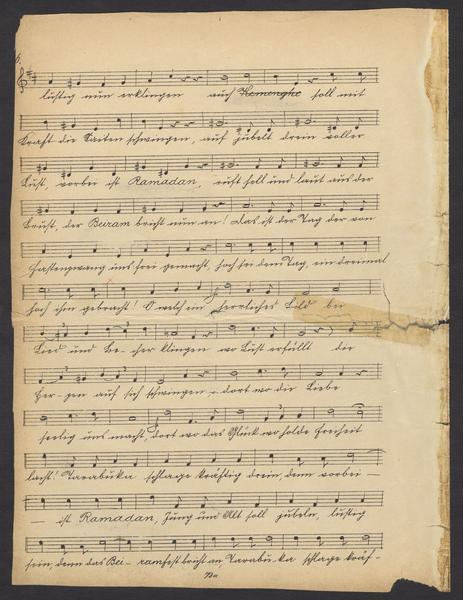 lustig nun erklingen auch Kemenghe soll mit
Kraft die Saiten schwingen, auf jubelt drein voller
Lust, vorbei ist Ramadan, ruft hell und laut aus der
Brust, der Beiram bricht nun an! Das ist der Tag der von
Fastenzwang uns frei gemacht, hoch sei dem Tag, ein dreimal
hoch ihm gebracht! O welch ein herrliches Bild bei
Lied und Be- cher klingen wo Lust erfüllt die
Her- zen auf sich schwingen dort wo die Liebe
seelig uns macht, dort wo das Glück wo holde Freiheit
lacht! Tarabuka schlage kräftig drein, denn vorbei —
— ist Ramadan, Jung und Alt soll jubeln, lustig
sein, denn das Bei- ramfest bricht an Tarabu-ka schlage kräf-